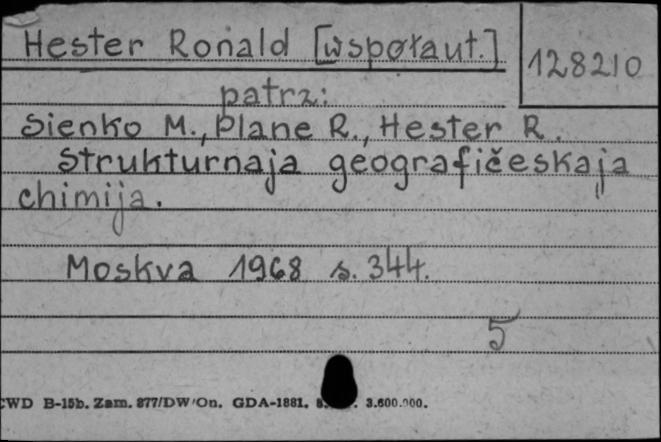 Hester Ronald [współaut.]
128210
patrz:
Sienko M., Plane R., Hester R.
Strukturnaja geografičeskaja
chimija.
Moskva 1968 s. 344.
5
CWD B-15b. Zam. 877/DW/On. GDA-1881. 3.600.000.